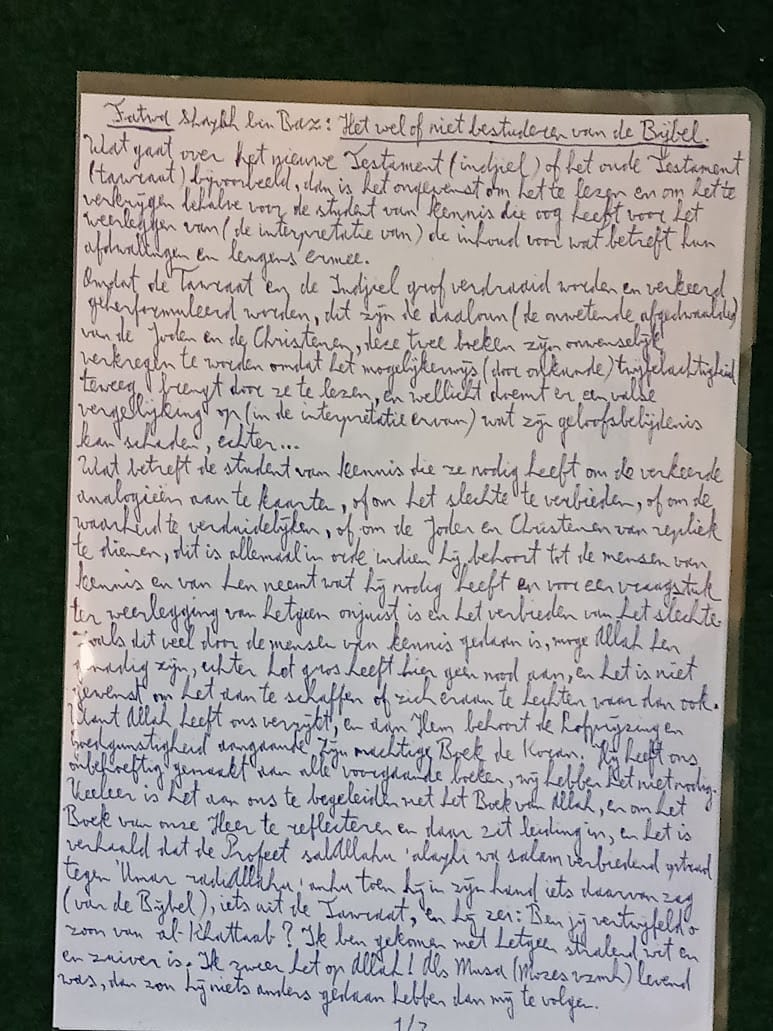 Fatwa shaykh bin Baz: Het wel of niet bestuderen van de Bijbel.
Wat gaat over het nieuwe Testament (indjiel) of het oude Testament
(tawraat) bijvoorbeeld, dan is het ongewenst om het te lezen en om het te
verkrijgen behalve voor de student van kennis die oog heeft voor het
weerleggen van (de interpretatie van) de inhoud voor wat betreft hun
afdwalingen en leugens ermee.
Omdat de Tawraat en de Indjiel grof verdraaid worden en verkeerd
geherformuleerd worden, dit zijn de daaloun (de onwetende afgedwaalde)
van de Joden en de Christenen, deze twee boeken zijn onwenselijk
verkregen te worden omdat het mogelijkerwijs (door onkunde) twijfelachtigheid
teweeg brengt door ze te lezen, en wellicht doemt er een valse
vergelijking op (in de interpretatie ervan) wat zijn geloofsbelijdenis
kan schaden, echter...
Wat betreft de student van kennis die ze nodig heeft om de verkeerde
analogieën aan te kaarten, of om het slechte te verbieden, of om de
waarheid te verduidelijken, of om de Joden en Christenen van repliek
te dienen, dit is allemaal in orde indien hij behoort tot de mensen van
kennis en van hen neemt wat hij nodig heeft en voor een vraagstuk
ter weerlegging van hetgeen onjuist is en het verbieden van het slechte.
Zoals dit veel door de mensen van kennis gedaan is, moge Allah hen
genadig zijn, echter het gros heeft hier geen nood aan, en het is niet
gewenst om het aan te schaffen of zich eraan te hechten waar dan ook.
Want Allah heeft ons verrijkt, en aan Hem behoort de Lofprijzing en
goedgunstigheid aangaande Zijn machtige Boek de Koran. Hij heeft ons
onbehoeftig gemaakt aan alle voorgaande boeken, wij hebben het niet nodig.
Veeleer is het aan ons te begeleiden met het Boek van Allah, en om het
Boek van onze Heer te reflecteren en daar zit leiding in, en het is
verhaald dat de Profeet salAllahu 'alayhi wa salam verbiedend optrad
tegen 'Umar radiAllahu 'anhu toen hij in zijn hand iets daarvan zag
(van de Bijbel), iets uit de Tawraat, en hij zei: Ben jij vertwijfeld o
zoon van al-Khattaab? Ik ben gekomen met hetgeen stralend wit en
en zuiver is. Ik zweer het op Allah! Als Musa (Mozes vzmh) levend
was, dan zou hij niets anders gedaan hebben dan mij te volgen.
1/2